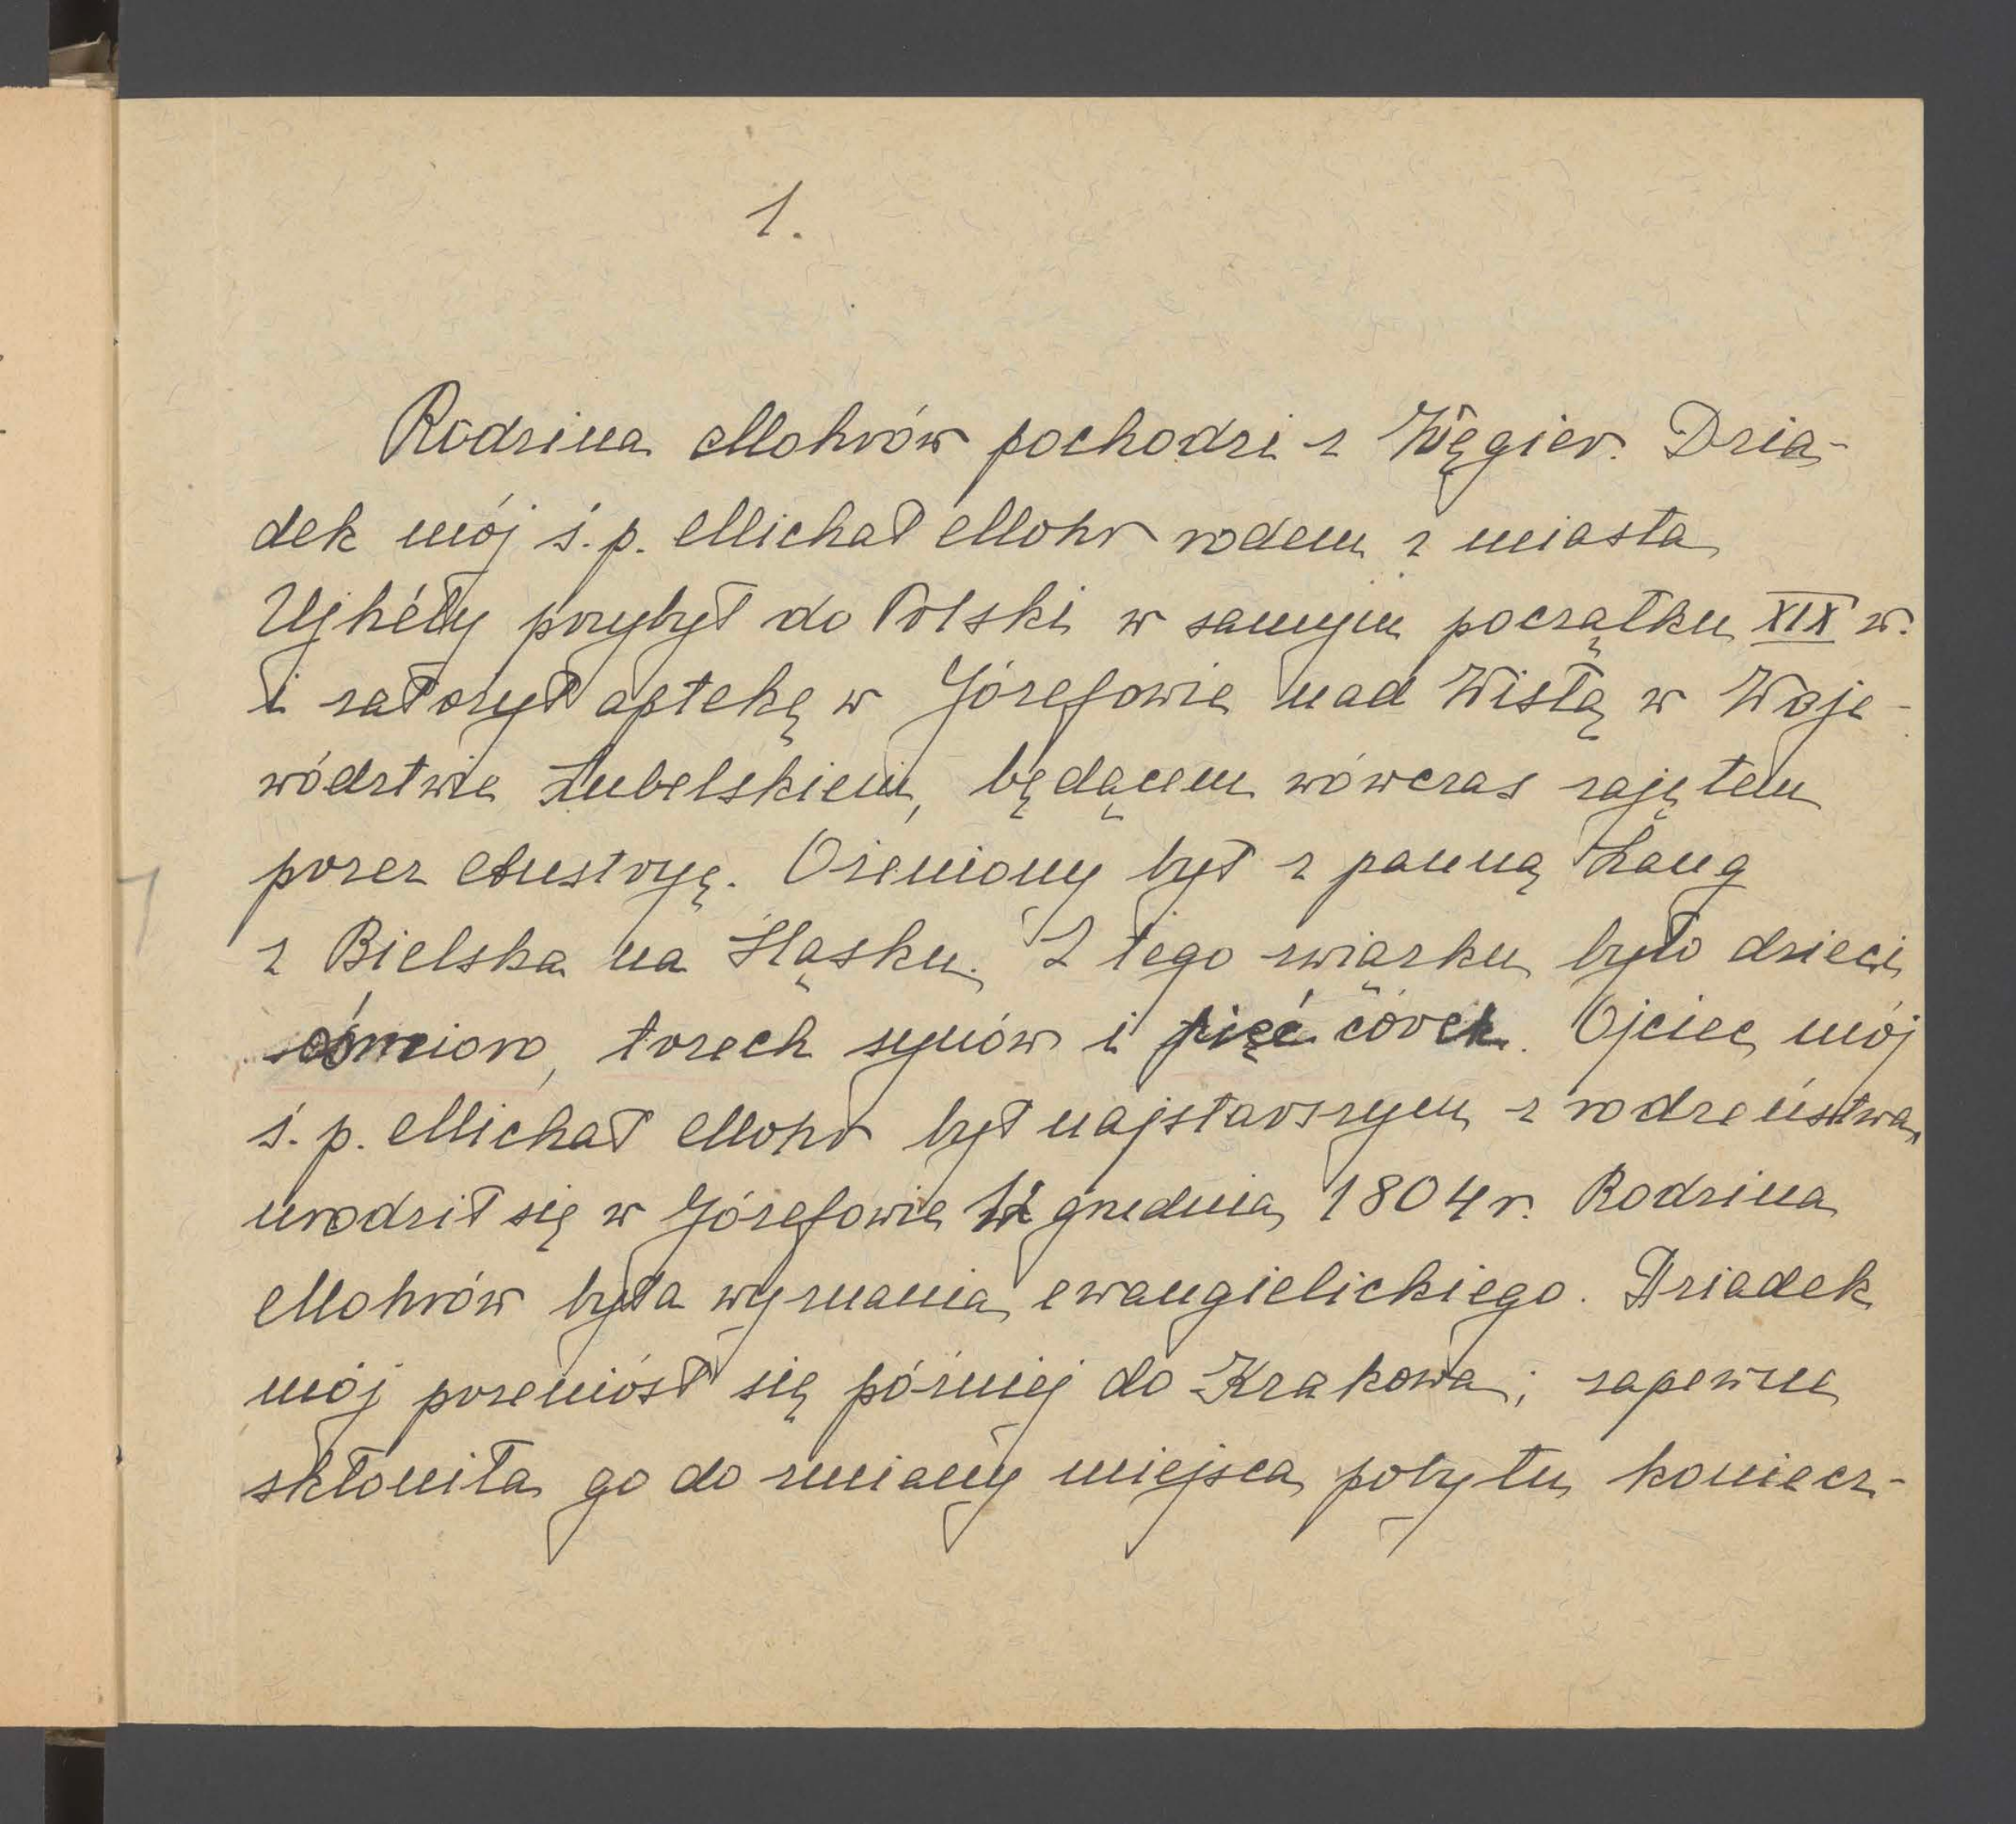 1.
Rodzina Mohrów pochodzi z Węgier. Dzia-
dek mój ś.p. Michał Mohr rodem z miasta
Ujhély przybył do Polski w samym początku XIX w.
i założył aptekę w Józefowie nad Wisłą w Woje-
wództwie Lubelskiem, będącem wówczas zajętem
przez Austryę. Ożeniony był z panną Lang
z Bielska na Śląsku. Z tego związku było dzieci
ośmioro, trzech synów i pięć córek. Ojciec mój
ś.p. Michał Mohr był najstarszym z rodzeństwa,
urodził się w Józefowie grudnia 1804 r. Rodzina
Mohrów była wyznania ewangielickiego. Dziadek
mój przeniósł się później do Krakowa; zapewne
skłoniła go do zmiany miejsca pobytu koniecz-